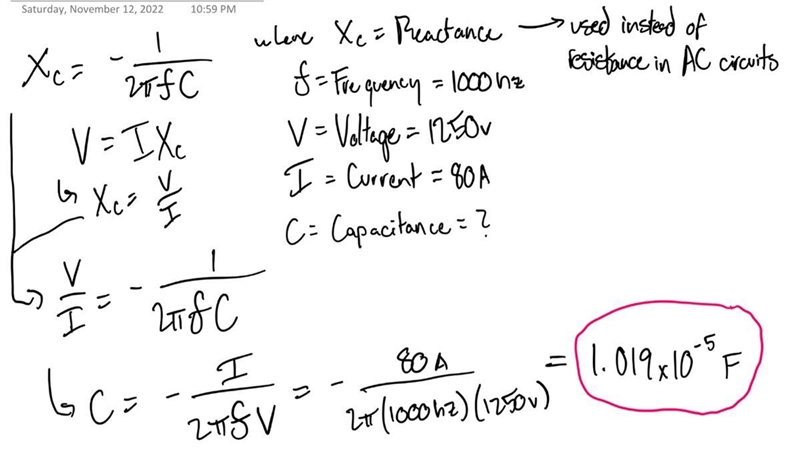 Saturday, November 12, 2022 10:59 PM
X_c = - 1/(2πfC) where X_c = Reactance → used instead of
resistance in AC circuits
f = Frequency = 1000hz
V = IX_c V = Voltage = 1250v
↳ X_c = V/I I = Current = 80A
C = Capacitance = ?
↳ V/I = - 1/(2πfC)
↳ C = - I/(2πfV) = - 80A/(2π(1000hz)(1250v)) = 1.019x10^-5 F